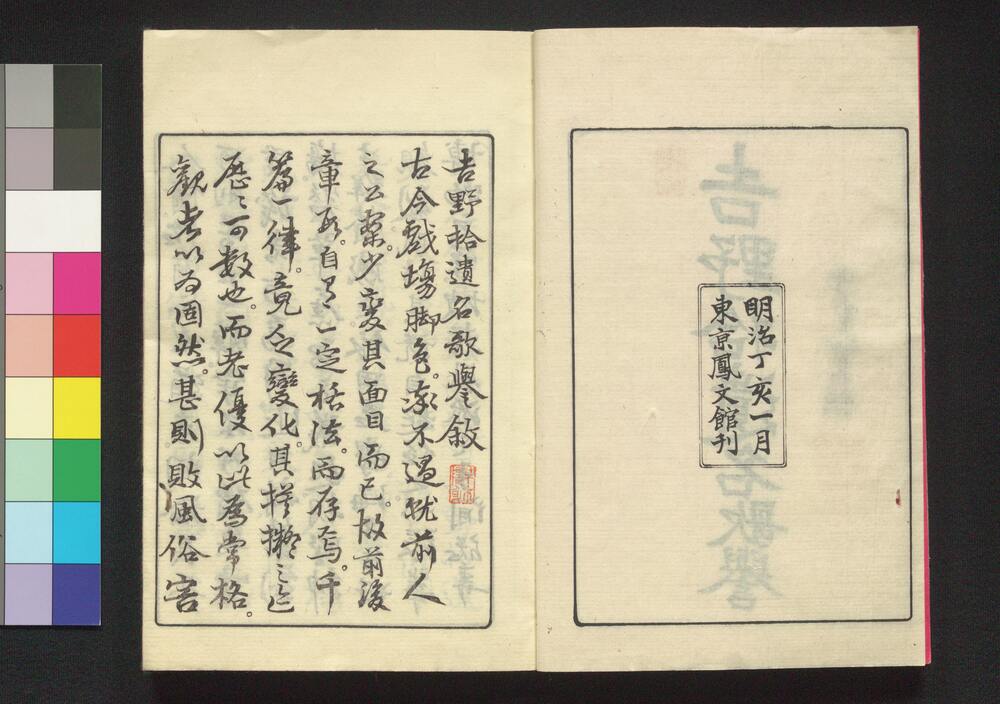 明治丁亥一月
東京鳳文館刊
吉野拾遺名歌譽敘
古今戲塲脚色。率不過就前人
之公案。少変其面目而已。故前後
章段。自有一定格法。而存焉。千
篇一律。竟乏變化。其摸擬之迹
歴〻可数也。而老優以此為常格。
観者以為固然。甚則敗風俗害